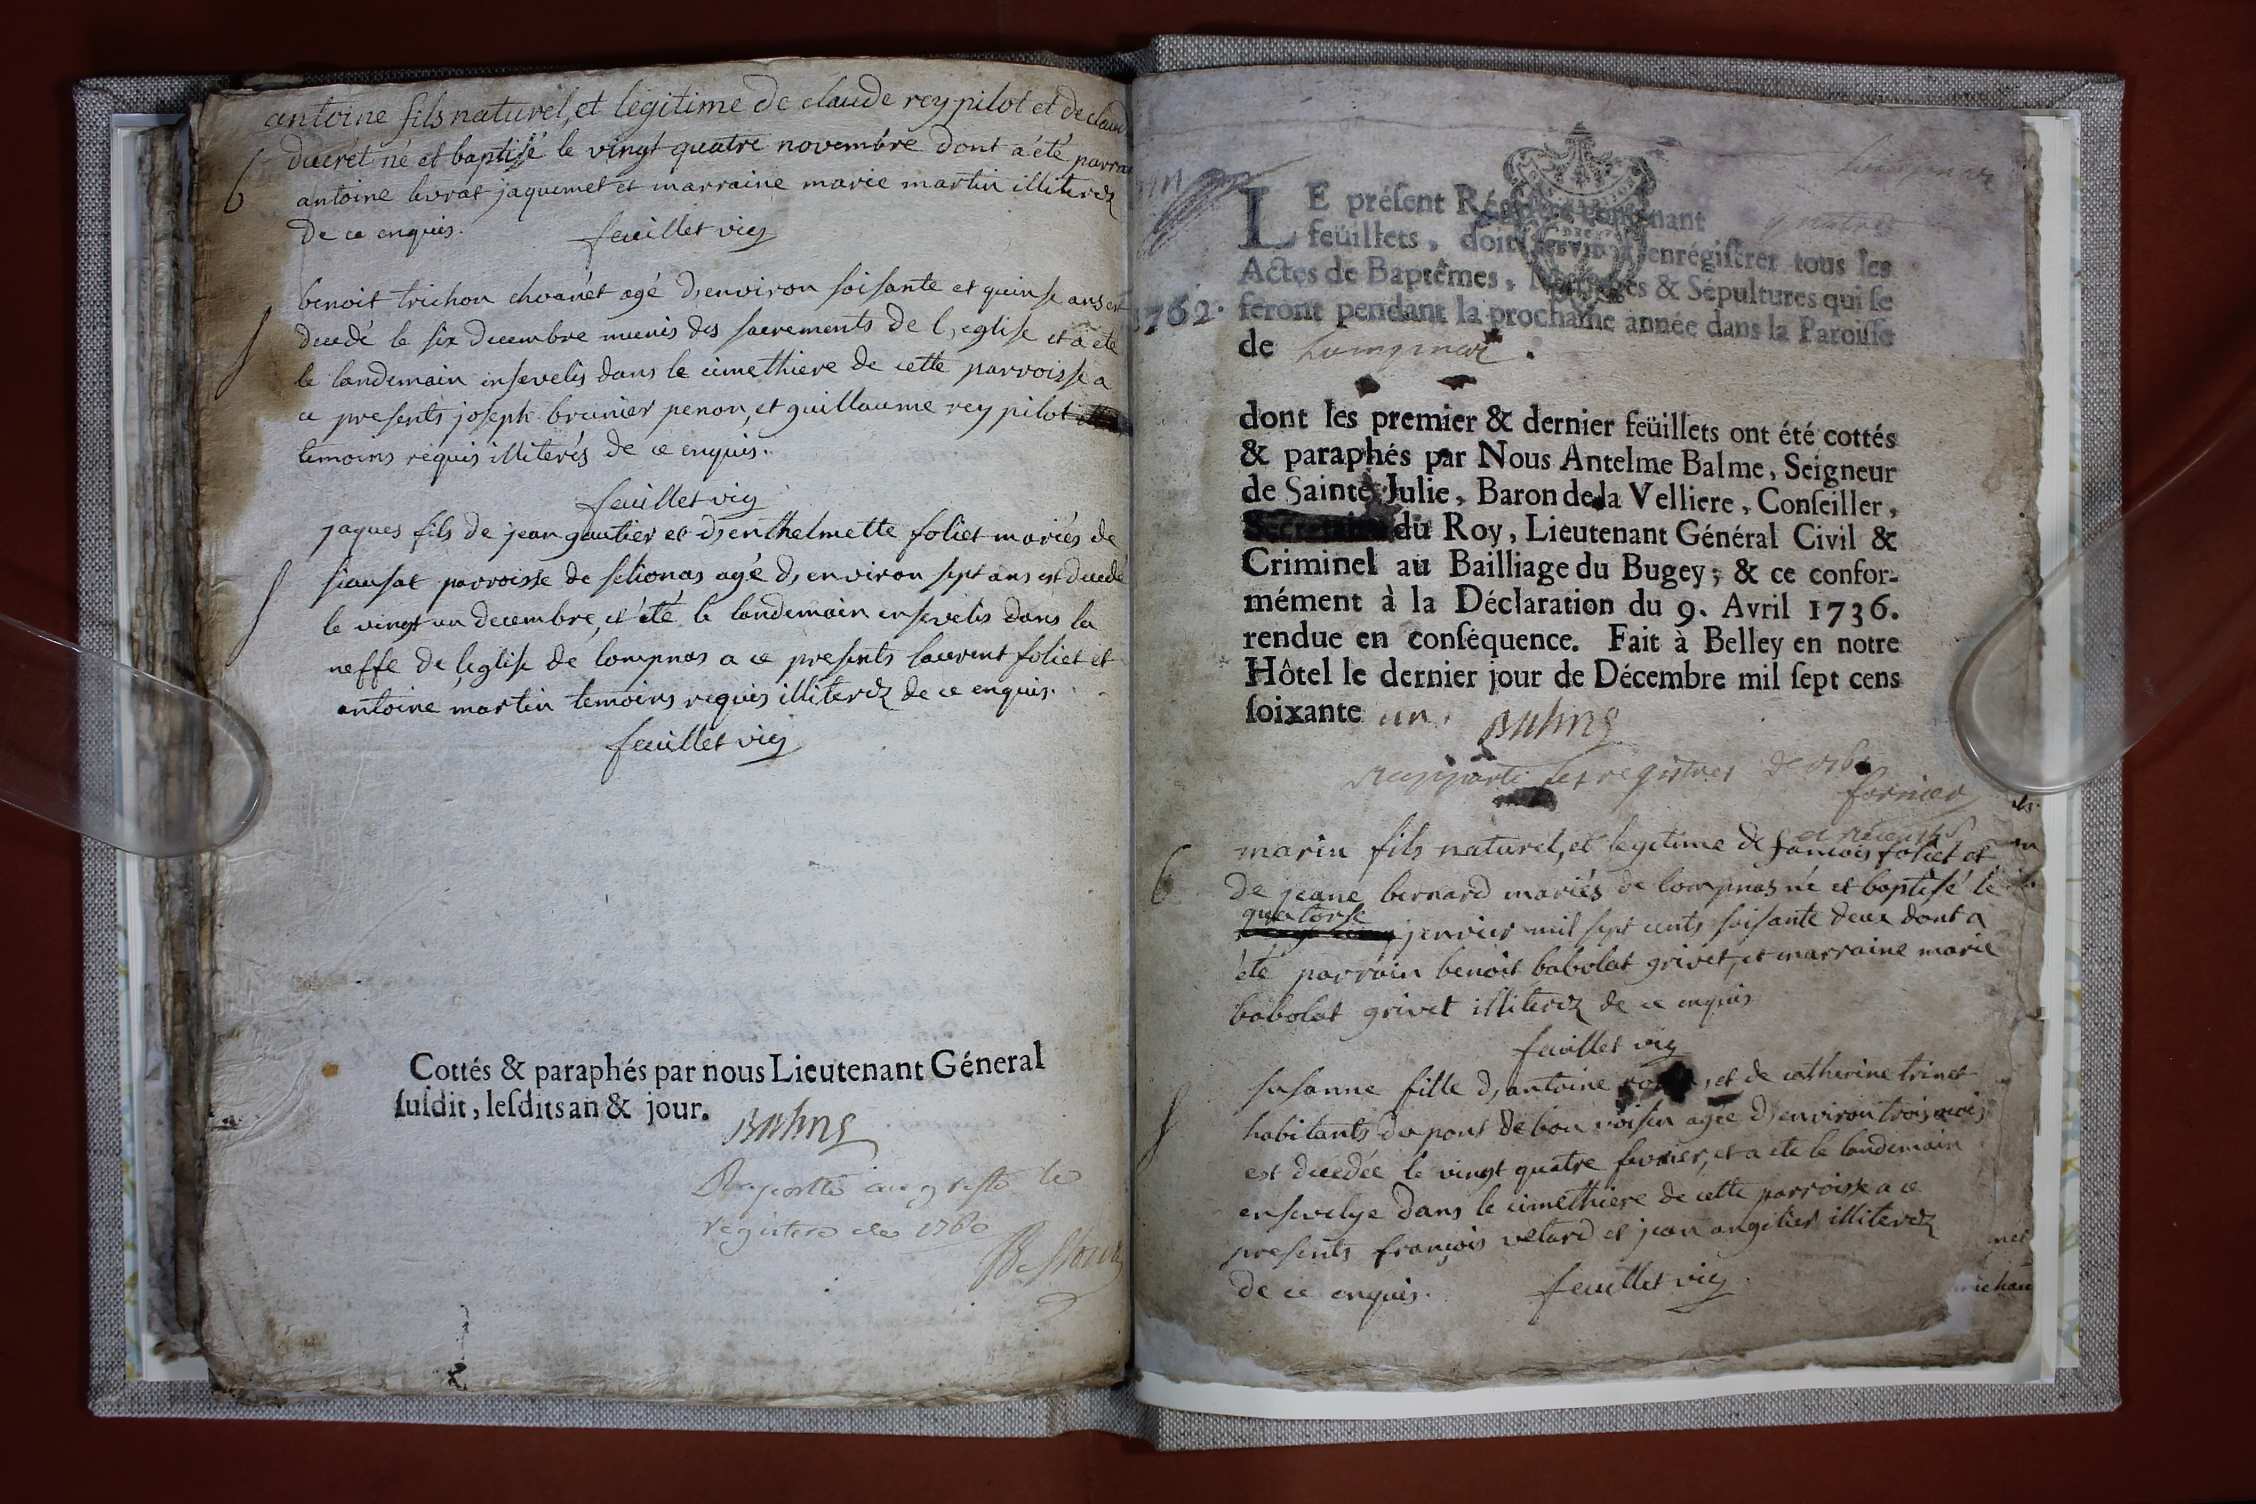 antoine fils naturel, et legitime de claude rey pilot et de claud
ducret né et baptisé le vingt quatre novembre dont a été parrain
antoine livrat jaquemet et marraine marie martin illiterez
de ce enquis. feuillet vic
benoit trichon chvanét agé d, environ soisante et quinse ans est
decedé le six decembre munis des sacrements de l, eglise et a eté
le landemain ensevelis dans le cimethiere de cette parroisse a
ce presents joseph brunier penon, et guillaume rey pilot
temoins requis illiterés de ce enquis.
feuillet vic
jaques fils de jean gautier et d, enthelmette foliet mariés de
siausat parroisse de selionas agé d, environ sept ans est decedé
le vingt un decembre, et été le landemain ensevelis dans la
neffe de l'eglise de lompnas a ce presents laurent foliet et
antoine martin temoins requis illiterez de ce enquis.
feuillet vic
Cottés & paraphés par nous Lieutenant Géneral
suſdit, leſdits an & jour.
Raportté au greffe le
registre de 1760
1762.
LE préſent Régiſtre contenant quatre
feüillets, doit ſervir à enrégiſtrer tous les
Actes de Baptêmes, Mariages & Sépultures qui ſe
feront pendant la prochaine année dans la Paroiſſe
de Lompnas.
dont les premier & dernier feüillets ont été cottés
& paraphés par Nous Antelme Balme, Seigneur
de Sainte Julie, Baron de la Velliere, Conſeiller,
Secretaire du Roy, Lieutenant Général Civil &
Criminel au Bailliage du Bugey; & ce confor-
mément à la Déclaration du 9. Avril 1736.
rendue en conſéquence. Fait à Belley en notre
Hôtel le dernier jour de Décembre mil ſept cens
ſoixante un.
rapporté les registres de
marin fils naturel, et legitime de francois foliet et
de jeane bernard mariés de lompnas né et baptisé le
quatorse
janvier mil sept cents soisante deux dont a
été parrain benoit babolat grivet, et marraine marie
babolat grivet illiterez de ce enquis
feuillet vic
susanne fille d, antoine , et de catherine trinet
habitants du pont de bon voisin agée d, environ trois mois
est decedée le vingt quatre fevrier, et a eté le landemain
ensevelye dans le cimethiere de cette parroisse a ce
presents françois velard et jean angelier illiterez
de ce enquis. feuillet vic